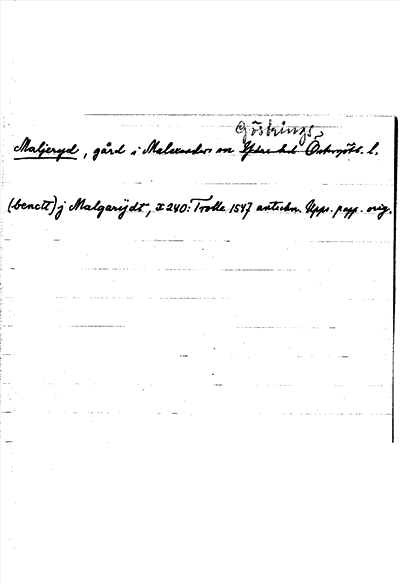 Göstrings
Maljeryd, gård i Malexanders sn Ydre hd Östergötl. l.
(benett) j Malgarijdt, x 240: Trolle 1547 anteckn. Upps. papp. orig.